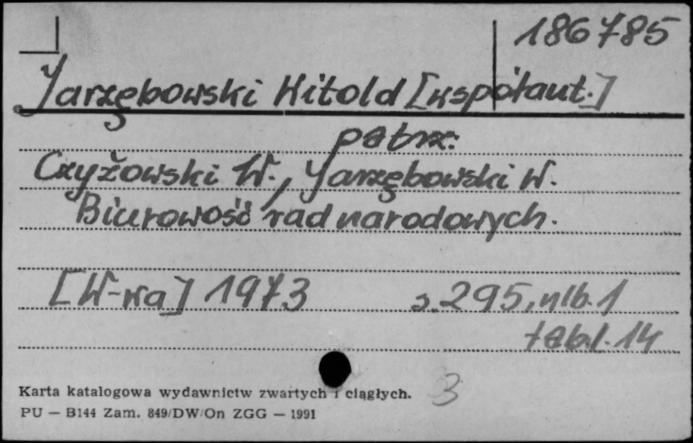 186785
Jarzębowski Witold [współaut.]
patrz:
Czyżowski W., Jarzębowski W.
Biurowość rad narodowych.
[W-wa] 1973 s. 295, nlb. 1
tabl. 14
Karta katalogowa wydawnictw zwartych i ciągłych. 3
PU — B144 Zam. 849/DW/On ZGG — 1991